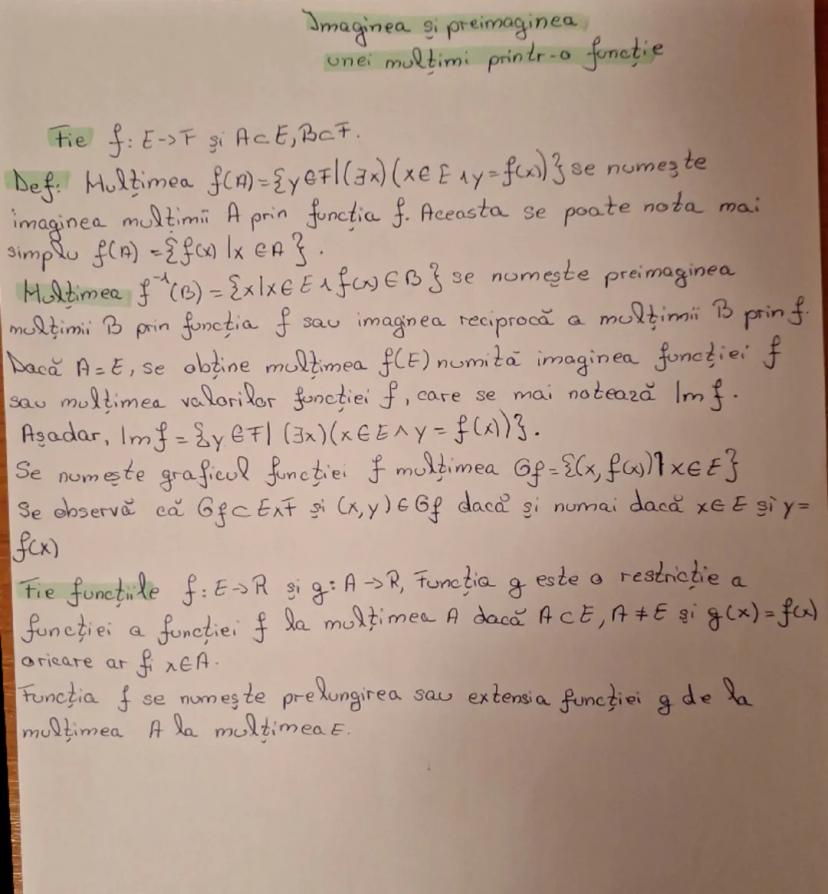 Imaginea și preimaginea
unei mulțimi printr-o funcție
Fie f: E→F și A⊂E, B⊂F.
Def: Mulțimea f(A)={y∈F|(∃x)(x∈E∧y=f(x)} se numește
imaginea mulțimii A prin funcția f. Aceasta se poate nota mai
simplu f(A)={f(x)|x∈A}.
Mulțimea f⁻¹(B)={x|x∈E∧f(x)∈B} se numește preimaginea
mulțimii B prin funcția f sau imaginea reciprocă a mulțimii B prin f.
Dacă A=E, se obține mulțimea f(E) numită imaginea funcției f
sau mulțimea valorilor funcției f, care se mai notează Im f.
Așadar, Im f={y∈F|(∃x)(x∈E∧y=f(x))}.
Se numește graficul funcției f mulțimea Gf={(x, f(x))|x∈E}
Se observă că Gf⊂E×F și (x,y)∈Gf dacă și numai dacă x∈E și y=
f(x)
Fie funcțiile f: E→R și g: A→R, Funcția g este o restricție a
funcției a funcției f la mulțimea A dacă A⊂E, A≠E și g(x)=f(x)
oricare ar fi x∈A.
Funcția f se numește prelungirea sau extensia funcției g de la
mulțimea A la mulțimea E.